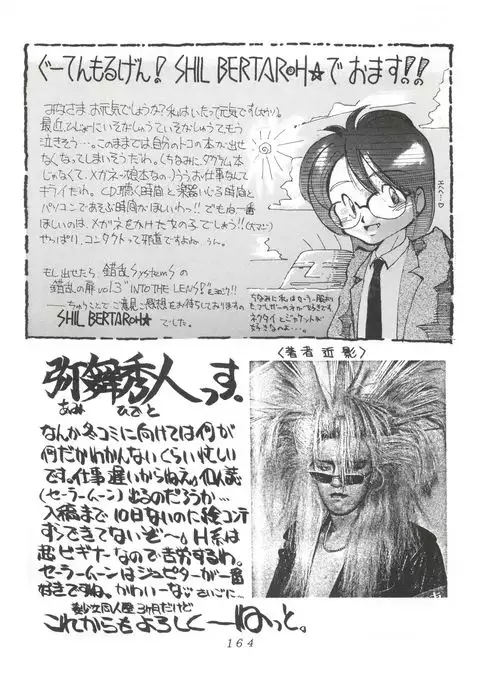 ぐーてんもるげん! SHIL BERTAR@H☆で おます!!
みなさま お元気でしょうか? 私はいたって元気です
最近、
泣きそう…。このままでは自分のトコの本が出せ
なくなってしまいそうだわ。(ちなみに、タクラム本
じゃなくて、メガネっ娘本なの)ううお仕事なんて
キライだわ。CD聴く時間と楽器いじる時間と
パソコンであそぶ時間がほしいわっ!! でもね一番
ほしいのは、メガネをかけた女の子でしょう!!
やっぱり、コンタクトって邪道ですよね うん。
もし出せたら 錯乱SystemSの
錯乱の扉 vol.3 "INTO THE LENS!"
ちゅうことで ご意見、ご感想をお待ちしておりますの
SHIL BERTAR@H☆ でした。
ネクタイとジャケットが
好きなのよ…。
〈著者近影〉
弥舞秀人っす。
あみ ひでと
なんか冬コミに向けては何が
何だかわかんないくらい忙しい
です。仕事遅いからねえ。個人誌
(セーラームーン) 出るのだろうか…
入稿まで10日ないのに絵コンテ
すらできてないぞ〜。H系は
超ビギナーなので苦労するわ。
セーラームーンはジュピターが一番
好きですね。かわいーな。さいごに…
これからもよろしく〜ねっと。
164